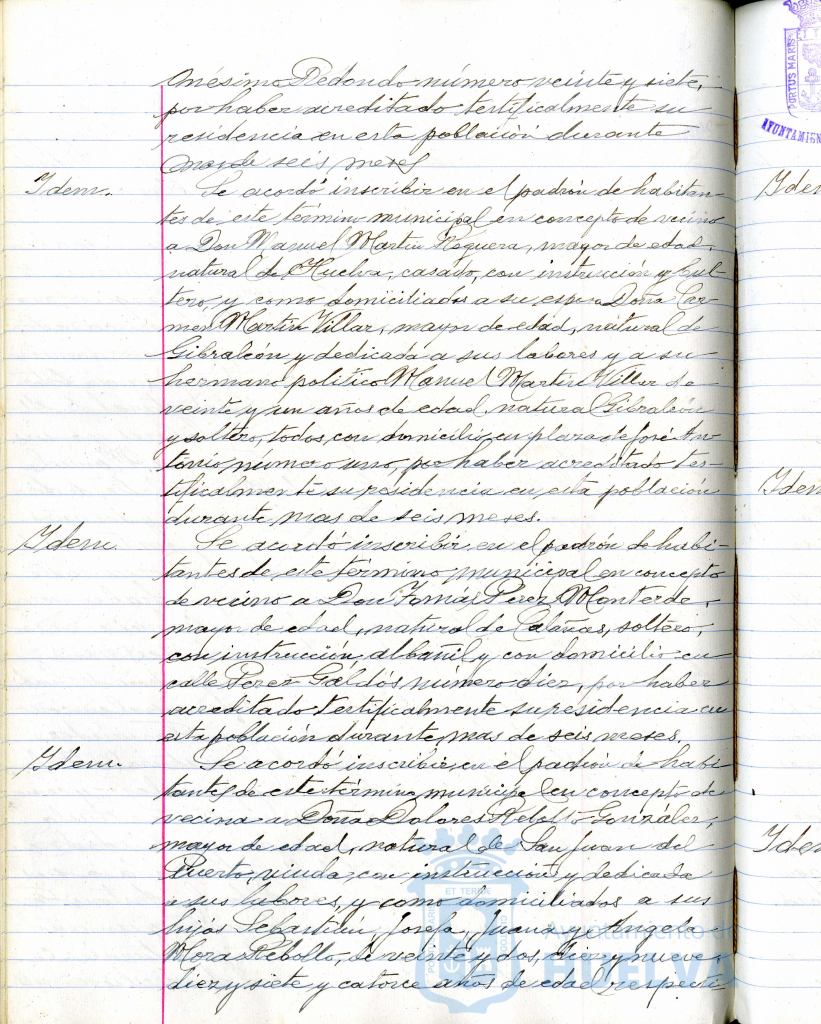 Onésimo Redondo número veinte y siete,
por haber acreditado testificalmente su
residencia en esta población durante
mas de seis meses
Idem.
Se acordó inscribir en el padrón de habitan-
tes de este término municipal en concepto de vecino
a Don Manuel Martin Noguera, mayor de edad,
natural de Huelva, casado, con instrucción y
y como domiciliados a su esposa Doña Car-
men Martin Villar, mayor de edad, natural de
Gibraleón y dedicada a sus labores y a su
hermano politico Manuel Martin Villar de
veinte y un años de edad, natural Gibraleón
y soltero, todos con domicilio en plaza de José An
tonio número uno, por haber acreditado tes-
tificalmente su residencia en esta población
durante mas de seis meses.
Idem.
Se acordó inscribir en el padrón de habi-
tantes de este término municipal en concepto
de vecino a Don Tomás Perez Monterde,
mayor de edad, natural de Calañas, soltero,
con instrucción, albañil y con domicilio en
calle Perez Galdós número diez, por haber
acreditado testificalmente su residencia en
esta población durante mas de seis meses.
Idem.
Se acordó inscribir en el padrón de habi-
tantes de este término municipal en concepto de
vecina a Doña Dolores Rebollo González,
mayor de edad, natural de San Juan del
Puerto, viuda, con instrucción y dedicada
a sus labores, y como domiciliados a sus
hijos Sebastián, Josefa, Juana y Angela
Mora Rebollo, de veinte y dos, diez y nueve
diez y siete y catorce años de edad respecti-
PORTUS MARIS
AYUNTAMIEN
Iden
Iden
Iden
Ayuntamiento d
HUELV